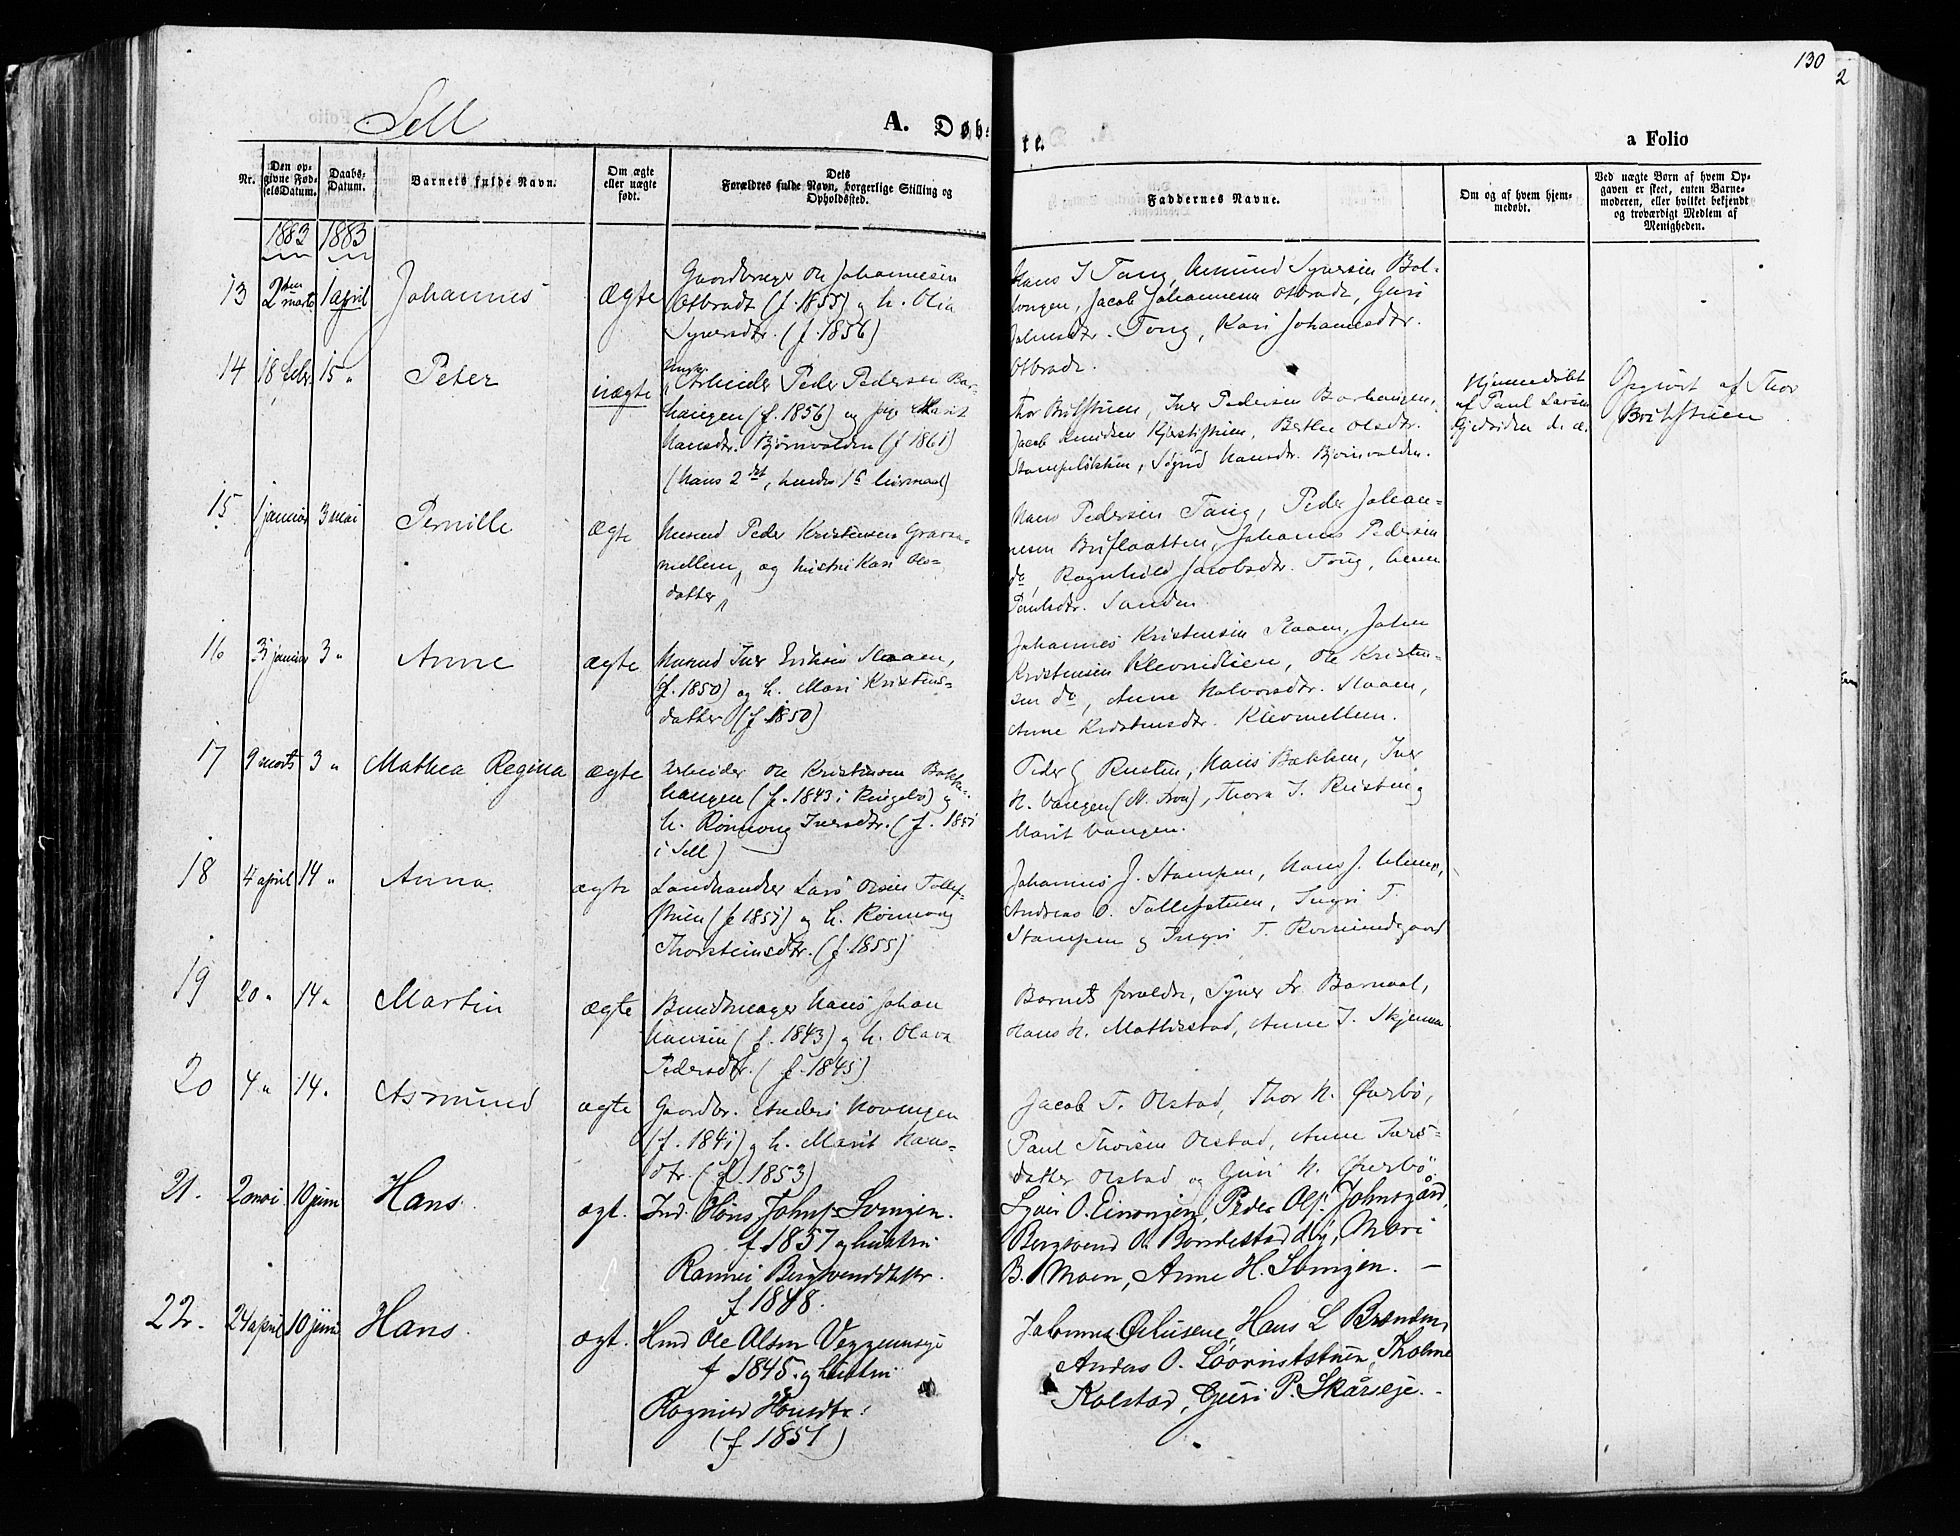 130
2
Sell
A. Døb-
te.
a Folio
Nr.
Den op-
givne Fød-
selsDatum.
Daabs-
Datum.
Barnets fulde Navn.
Om ægte
eller uægte
født.
Dets
Forældres fulde Navn, borgerlige Stilling og
Opholdssted.
Faddernes Navne.
Om og af hvem hjem-
medøbt.
Ved uægte Børn af hvem Op-
gaven er skeet, enten Barne-
moderen, eller hvilket bekjendt
og troværdigt Medlem af
Menigheden.
1883 1883
13 2den marts 1 april Johannes ægte
Gaardbruger Ole Johannesen
Otbradt (f. 1855) og h. Olia
Synersdtr. (f. 1856)
Hans J Tong, Amund Synersen Bol-
vongen, Jacob Johannesen Otbradt, Guri
Johnsdtr. Tong, Kari Johannesdtr.
Otbradt.
14 18 Febr. 15 " Peter uægte
Arbeider Peder Pedersen Bar-
haugen (f. 1856) og pige Marit
Hansdtr. Bjørnvolden (f. 1861)
(hans 2det, hendes 1ste leiermaal)
Thor Bristuen, Iver Pedersen Barhaugen,
Jacob Knudsen Kjerstistuen, Berthe Olsdtr.
Stampeløkken, Sigrid Hansdtr. Bjørnvolden.
Hjemmedøbt
af Paul Larsen
Opgivet af Thor
15 1 januar 3 mai Pernille ægte
Husmd Peder Kristensen
mellem, og hustru Kari Ols-
datter
Hans Pedersen Tong, Peder Johan-
nesen Brislaatten, Johannes Pedersen
do, Ragnhild Jacobsdtr. Tong,
Paulsdtr. Sanden.
16 31 januar 3 " Anne ægte
Husmd Iver Eriksen Slaaen,
(f. 1850) og h. Mari Kristens-
datter (f. 1850)
Johannes Kristensen Slaaen, John
Kristensen Klevmdlien, Ole Kristen-
sen do, Anne Halvorsdtr. Slaaen,
Anne Kristensdtr. Klevmellem.
17 9 marts 3 " Mathea Regina ægte
Arbeider Ole Kristensen Bakke-
haugen (f. 1843 i Ringebo) og
h. Rønnoug Iversdtr. (f. 1851
i Sell)
Peder G Rusten, Hans Bakken, Iver
H. Vangen (N. Fron), Thora I. Rusten og
Marit Vangen.
18 4 april 14 " Anna ægte
Landhandler Lars Olsen Tollef-
stuen (f 1851) og h. Rønnoug
Thorsteinsdtr. (f. 1855)
Johannes J. Stampen, Hans J. Ulmen,
Andreas O. Tollefstuen, Ingri T.
Stampen og Ingri T. Romundgaard
19 20 " 14 " Martin ægte
Bundtmager Hans Johan
Hansen (f. 1843) og h. Olava
Pedersdtr. (f. 1845)
Barnets forældre, Syver Fr. Barnaal,
Hans H. Mathisstad, Anne I. Skjenna
20 4 " 14 " Asmund ægte
Gaardbr. Anders Hovengen
(f. 1841) og h. Marit Hans-
dtr. (f. 1853)
Jacob T. Olstad, Thor H. Øverbø,
Paul Thorsen Olstad, Anne Iers-
datter Olstad og Guri H. Øverbø.
21. 2 mai 10 juni Hans ægt.
Ind. Hans Johns. Svingen.
f. 1857 og hustru
Rannei Bergsvendsdatter.
f 1848.
Syver O. Einangen, Peder Ols. Johnsgård,
Bergsvend O. Bondestad dy, Mari
B. Moen, Anne H. Svingen. –
22. 24 april 10 juni Hans. ægt.
Hmd Ole Olsen Veggemseje
f 1845. og hustru
Ragnild Hansdtr.
(f 1851)
Johannes Øihusene, Hans L Brenden,
Anders O. Loornistuen, Tholine
Kolstad, Guri P. Skårseje. –